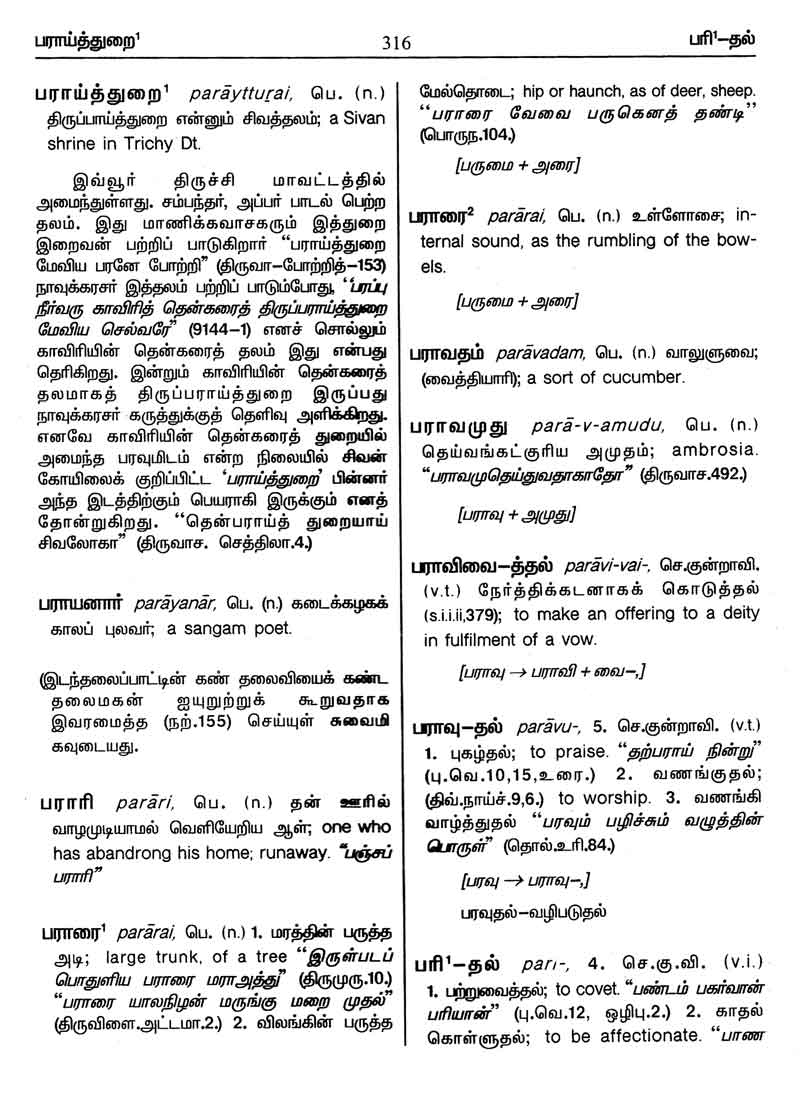 பராய்த்துறை¹
316
பரி¹–தல்
பராய்த்துறை¹ parāytturai, பெ. (n.)
திருப்பாய்த்துறை என்னும் சிவத்தலம்; a Sivan
shrine in Trichy Dt.
இவ்வூர் திருச்சி மாவட்டத்தில்
அமைந்துள்ளது. சம்பந்தர், அப்பர் பாடல் பெற்ற
தலம். இது மாணிக்கவாசகரும் இத்துறை
இறைவன் பற்றிப் பாடுகிறார் “பராய்த்துறை
மேவிய பரனே போற்றி” (திருவா–போற்றித்–153)
நாவுக்கரசர் இத்தலம் பற்றிப் பாடும்போது, ‘‘பரப்பு
நீர்வரு காவிரித் தென்கரைத் திருப்பராய்த்துறை
மேவிய செல்வரே” (9144–1) எனச் சொல்லும்
காவிரியின் தென்கரைத் தலம் இது என்பது
தெரிகிறது. இன்றும் காவிரியின் தென்கரைத்
தலமாகத் திருப்பராய்த்துறை இருப்பது
நாவுக்கரசர் கருத்துக்குத் தெளிவு அளிக்கிறது.
எனவே காவிரியின் தென்கரைத் துறையில்
அமைந்த பரவுமிடம் என்ற நிலையில் சிவன்
கோயிலைக் குறிப்பிட்ட ‘பராய்த்துறை’ பின்னர்
அந்த இடத்திற்கும் பெயராகி இருக்கும் எனத்
தோன்றுகிறது. “தென்பராய்த் துறையாய்
சிவலோகா” (திருவாச. செத்திலா.4.)
பராயனார் parāyanār, பெ. (n.) கடைக்கழகக்
காலப் புலவர்; a sangam poet.
(இடந்தலைப்பாட்டின் கண் தலைவியைக் கண்ட
தலைமகன் ஐயுறுற்றுக் கூறுவதாக
இவரமைத்த (நற்.155) செய்யுள் சுவைமி
கவுடையது.
பராரி parāri, பெ. (n.) தன் ஊரில்
வாழமுடியாமல் வெளியேறிய ஆள்; one who
has abandrong his home; runaway. “பஞ்சப்
பராரி”
பராரை¹ parārai, பெ. (n.) 1. மரத்தின் பருத்த
அடி; large trunk, of a tree “இருள்படப்
பொதுளிய பராரை மராஅத்து” (திருமுரு.10.)
“பராரை யாலநிழன் மருங்கு மறை முதல்”
(திருவிளை.அட்டமா.2.) 2. விலங்கின் பருத்த
மேல்தொடை; hip or haunch, as of deer, sheep.
“பராரை வேவை பருகெனத் தண்டி”
(பொருந.104.)
[பருமை + அரை]
பராரை² parārai, பெ. (n.) உள்ளோசை; in-
ternal sound, as the rumbling of the bow-
els.
[பருமை + அரை]
பராவதம் parāvadam, பெ. (n.) வாலுளுவை;
(வைத்தியாரி); a sort of cucumber.
பராவமுது parā-v-amudu, பெ. (n.)
தெய்வங்கட்குரிய அமுதம்; ambrosia.
“பராவமுதெய்துவதாகாதோ” (திருவாச.492.)
[பராவு + அமுது]
பராவிவை–த்தல் parāvi-vai-, செ.குன்றாவி.
(v.t.) நேர்த்திக்கடனாகக் கொடுத்தல்
(s.i.i.ii,379); to make an offering to a deity
in fulfilment of a vow.
[பராவு → பராவி + வை–,]
பராவு–தல் parāvu-, 5. செ.குன்றாவி. (v.t.)
1. புகழ்தல்; to praise. “தற்பராய் நின்று”
(பு.வெ.10,15,உரை.) 2. வணங்குதல்;
(திவ்.நாய்ச்.9,6.) to worship. 3. வணங்கி
வாழ்த்துதல் “பரவும் பழிச்சும் வழுத்தின்
பொருள்” (தொல்.உரி.84.)
[பரவு → பராவு–,]
பரவுதல்–வழிபடுதல்
பரி¹–தல் pari-, 4. செ.கு.வி. (v.i.)
1. பற்றுவைத்தல்; to covet. “பண்டம் பகர்வான்
பரியான்” (பு.வெ.12, ஒழிபு.2.) 2. காதல்
கொள்ளுதல்; to be affectionate. “பாண